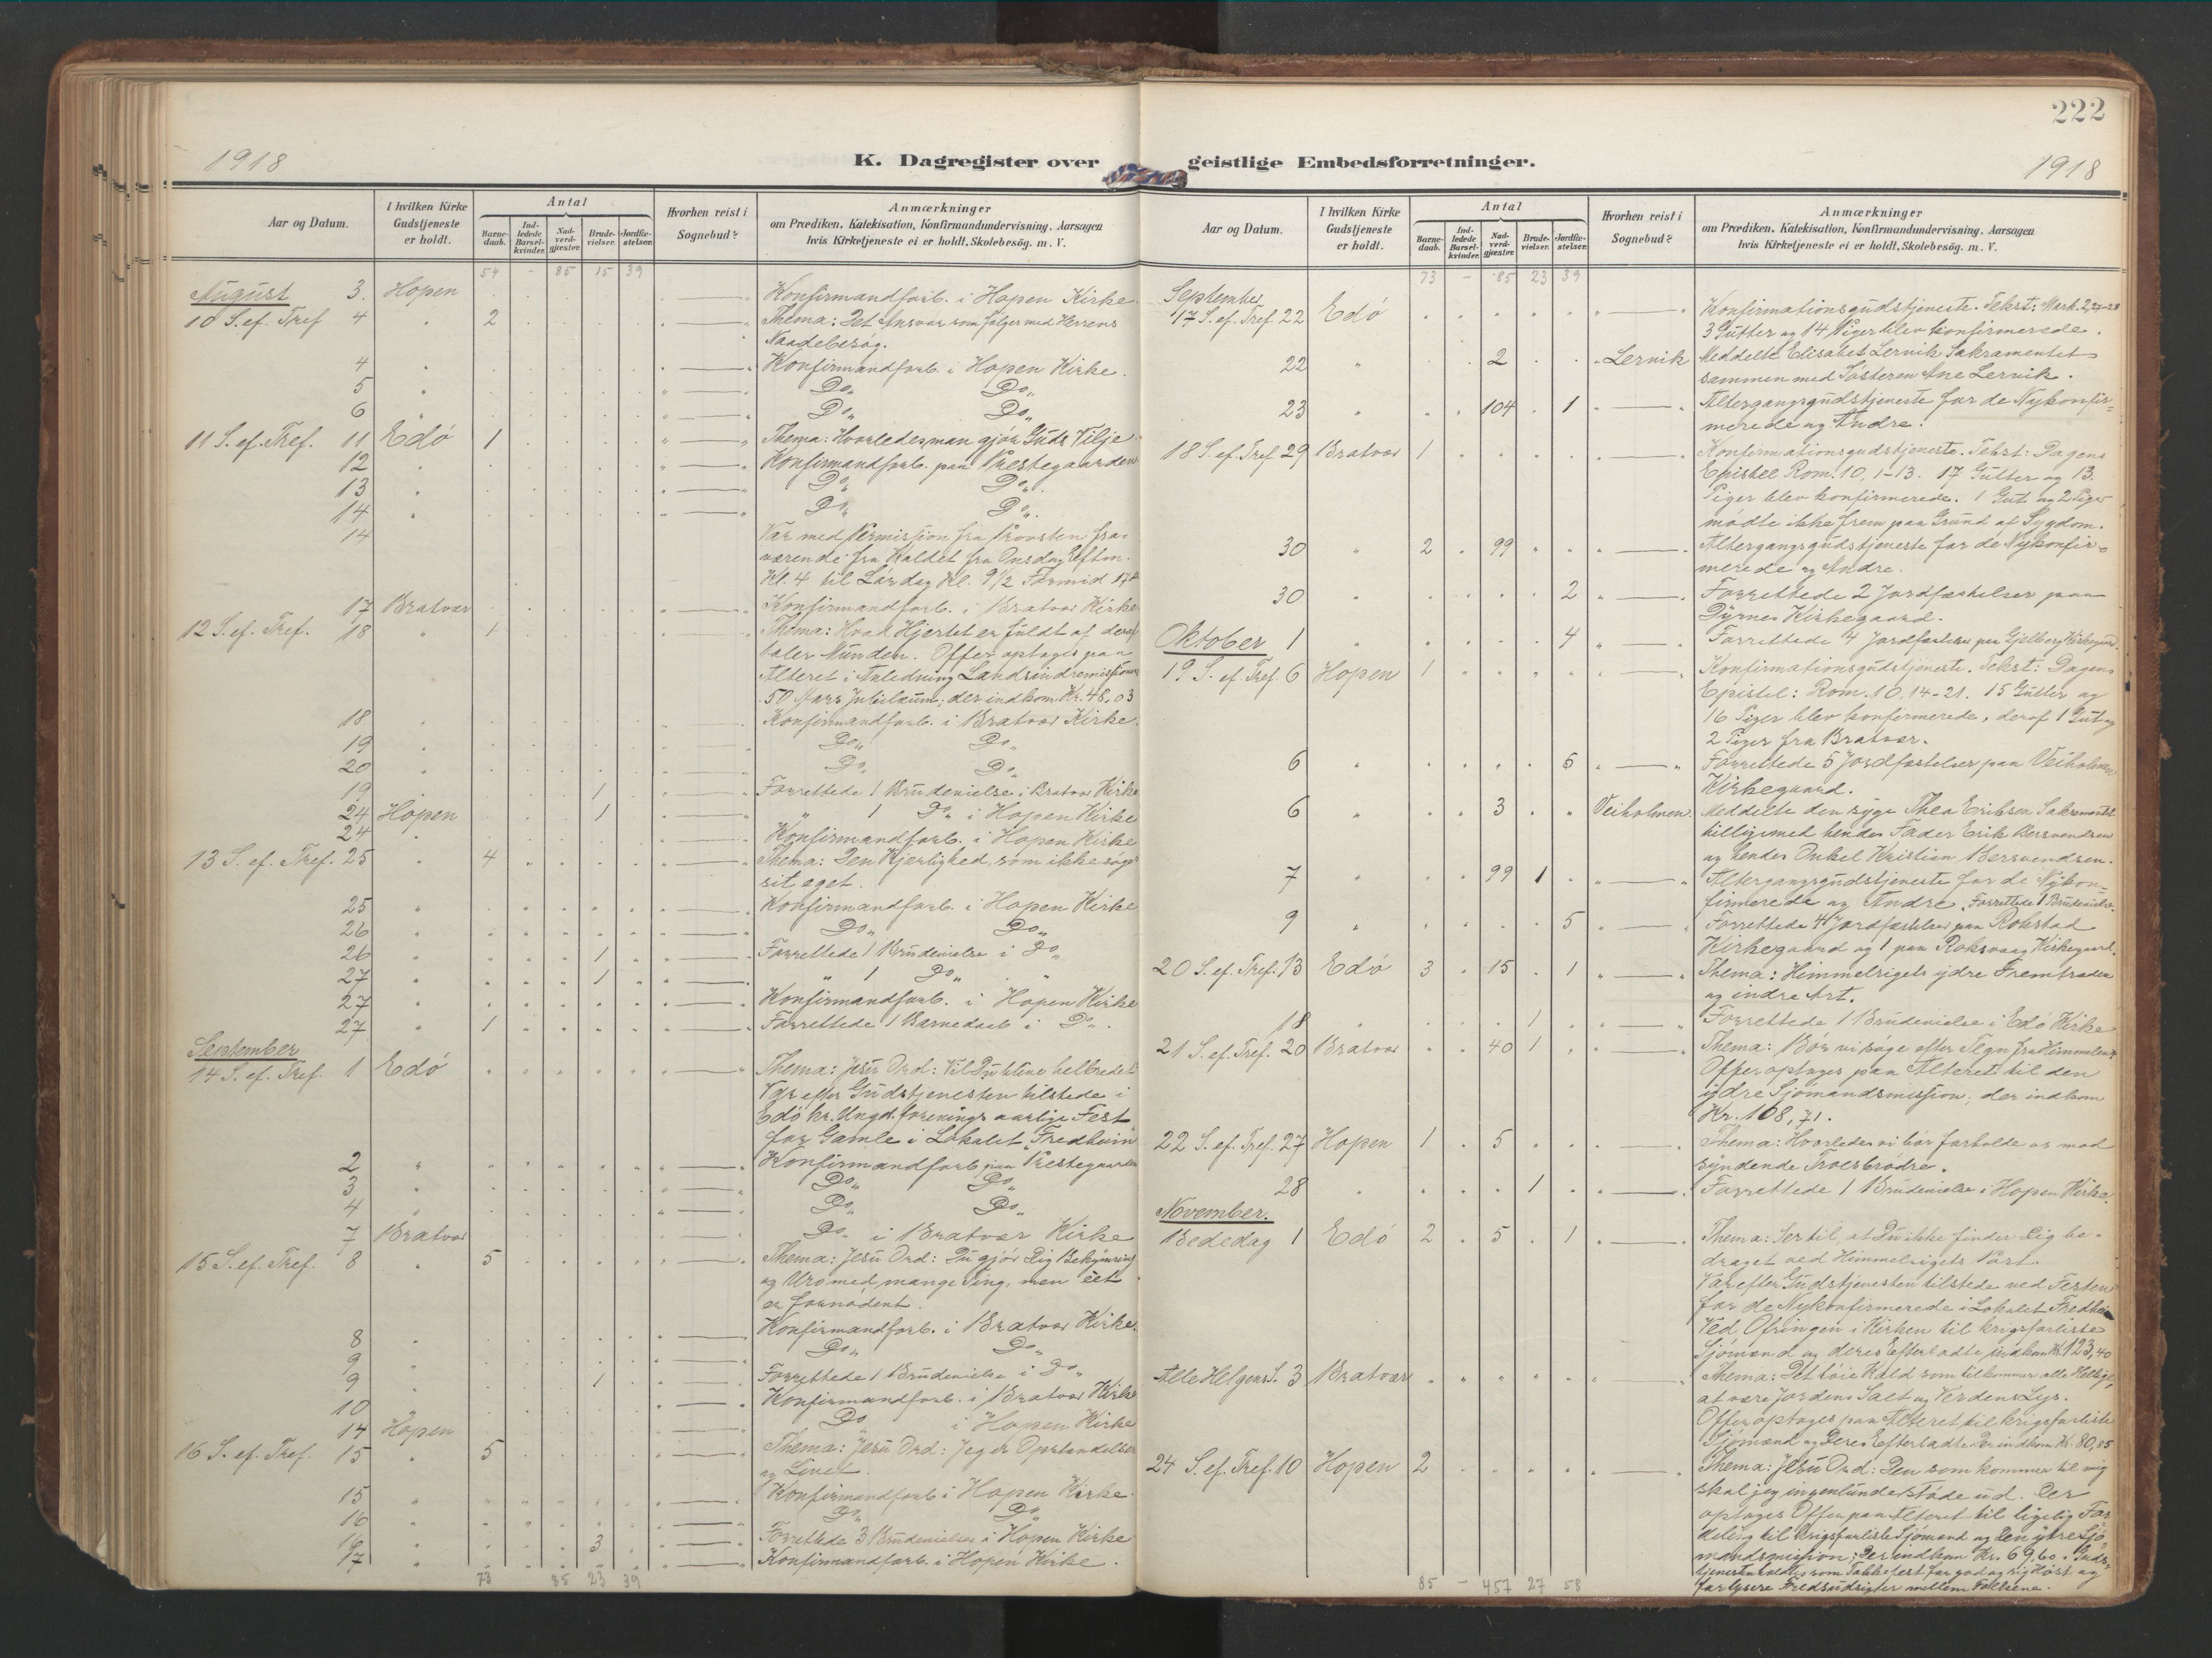 222
1918
K. Dagregister over geistlige Embedsforretninger.
1918
Aar og Datum.
I hvilken Kirke Gudstjeneste er holdt.
Antal
Barnedaab.
Indledede Barselkvinder.
Nadverdgjester.
Brudevielser.
Jordfæstelser.
Hvorhen reist i Sognebud?
Anmærkninger
om Prædiken, Katekisation, Konfirmandundervisning, Aarsagen
hvis Kirketjeneste ei er holdt, Skolebesög. m. V.
54 - 85 15 39
August 3. Hopen Konfirmandforb. i Hopen Kirke.
10 S. ef. Tref 4 " 2 Thema: Det Ansvar som følger med Herrens
Naadebesøg.
4 " Konfirmandforb. i Hopen Kirke.
5 " Do, Do,
6 " Do, Do,
11 S. ef. Tref. 11 Edö 1 Thema: Hvorledes man gjör Guds Vilje
12 " Konfirmandforb. paa Prestegaarden
13 " Do, Do,
14 " Do, Do,
14 Var med Permission fra Provsten fra-
værende fra Kaldet fra Onsdag Efterm.
Kl. 4 til Lördag Kl. 9 1/2 Formid 17de
17 Bratvær Konfirmandforb. i Bratvær Kirke
12 S. ef. Tref. 18 " 1 Thema: Hvad Hjertet er fuldt af deraf
taler Munden. Offer optoges paa
Alteret i Anledning Landsindremissionens
50 Aars Jubilæum; der indkom Kr. 48,03
18 " Konfirmandforb. i Bratvær Kirke.
19 " Do, Do,
20 " Do, Do,
19 " 1 Forrettede 1 Brudevielse i Bratvær Kirke
24 Hopen 1 " 1 Do, i Hopen Kirke
24 " Konfirmandforb. i Hopen Kirke
13 S. ef. Tref. 25 " 4 Thema: Den Kjærlighed, som ikke søger
sit eget.
25 " Konfirmandforb. i Hopen Kirke
26 " Do, Do,
26 " 1 Forrettede 1 Brudevielse i Do,
27 " 1 " 1 Do, "
27 " Konfirmandforb. i Hopen Kirke
27 " 1 Forrettede 1 Barnedaab i Do.
September
14 S. ef. Tref. 1 Edö Thema: Jesu Ord: Vil Du blive helbredet
Var efter Gudstjenesten tilstede i
Edö kr. Ungd. forenings aarlige Fest
for Gamle i Lokalet "Fredheim"
2 " Konfirmandforb. paa Prestegaarden
3 " Do, Do,
4 " Do, Do,
7 Bratvær Do, i Bratvær Kirke
15 S. ef. Tref. 8 " 5 Thema: Jesu Ord: Du gjör Dig Bekymring
og Uro med mange Ting, men éet
er fornödent.
8 " Konfirmandforb. i Bratvær Kirke.
9 " Do, Do,
9 " 1 Forrettede 1 Brudevielse i Do,
10 Konfirmandforb. i Bratvær Kirke
14 Hopen Do i Hopen Kirke
16 S. ef. Tref. 15 " 5 Thema: Jesu Ord: Jeg er Opstandelsen
og Livet.
15 " Konfirmandforb. i Hopen Kirke.
16 " Do, Do,
16 " 3 Forrettede 3 Brudevielser i Hopen Kirke
17 " Konfirmandforb. i Hopen Kirke.
73 85 23 39
Aar og Datum.
I hvilken Kirke Gudstjeneste er holdt.
Antal
Barnedaab.
Indledede Barselkvinder.
Nadverdgjester.
Brudevielser.
Jordfæstelser.
Hvorhen reist i Sognebud?
Anmærkninger
om Prædiken, Katekisation, Konfirmandundervisning, Aarsagen
hvis Kirketjeneste ei er holdt, Skolebesög. m. V.
73 - 85 23 39
September
17 S. ef. Tref. 22 Edö Konfirmationsgudstjeneste. Tekst: Mark. 2,27-28
3 Gutter og 14 Piger blev konfirmerede.
22 " 2 Lervik Meddelte Elisabet Lervik Sakramentet
sammen med Søsteren Ane Lervik.
23 " 104 1 Altergangsgudstjeneste for de Nykonfir-
merede og Andre.
18 S. ef. Tref 29 Bratvær 1 Konfirmationsgudstjeneste. Tekst: Dagens
Epistel Rom. 10, 1-13. 17 Gutter og 13.
Piger blev konfirmerede. 1 Gut og 2 Piger
mödte ikke frem paa Grund af Sygdom.
30 " 2 99 Altergangsgudstjeneste for de Nykonfir-
merede og Andre.
30 " 2 Forrettede 2 Jordfæstelser paa
Dyrnes Kirkegaard.
Oktober 1 " 4 Forrettede 4 Jordfæstelser paa Gjelberg Kirkegaard.
19 S. ef. Tref. 6 Hopen 1 Konfirmationsgudstjeneste. Tekst: Dagens
Epistel: Rom. 10. 14-21. 15 Gutter og
16 Piger blev konfirmerede, deraf 1 Gut og
2 Piger fra Bratvær.
6 " 5 Forrettede 5 Jordfæstelser paa Veiholmen
Kirkegaard.
6 " 3 Veiholmen. Meddelte den syge Thea Eriksen Sakramentet
tilligemed hendes Fader Erik Bersvendsen
og hendes Onkel Kristian Bersvendsen.
7 " 99 1 Altergangsgudstjeneste for de Nykon-
firmerede og Andre. Forrettede 1 Brudevielse.
9 " 5 Forrettede 4 Jordfæstelser paa Rokstad
Kirkegaard og 1 paa Roksvaag Kirkegaard.
20 S. ef. Tref. 13 Edö 3 15 1 Thema: Himmelrigets ydre Fremtræden
og indre Art.
18 " 1 Forrettede 1 Brudevielse i Edö Kirke
21 S. ef. Tref. 20 Bratvær 40 1 Thema: Bör vi søge efter Tegn fra Himmelen?
Offer optoges paa Alteret til den
ydre Sjömandsmission; der indkom
Kr. 108,71.
22 S. ef. Tref. 27 Hopen 1 5 Thema: Hvorledes vi bör forholde os mod
syndende Troesbrödre.
28 " 1 Forrettede 1 Brudevielse i Hopen Kirke.
November.
Bededag 1 Edö 2 5 1 Thema: Se til, at Du ikke finder Dig be-
draget ved Himmelrigets Port.
Var efter Gudstjenesten tilstede ved Festen
for de Nykonfirmerede i Lokalet Fredheim
Ved Ofringen i Kirken til krigsforliste
Sjömænd og deres Efterladte indkom Kr. 123,40
Alle Helgens S. 3 Bratvær Thema: Det höie Kald som tilkommer alle Hellige,
at være Jordens Salt og Verdens Lys.
Offer optoges paa Alteret til krigsforliste
Sjömænd og Deres Efterladte. Der indkom Kr. 80,85
24 S. ef. Tref. 10 Hopen 2 Thema: Jesu Ord: Den som kommer til mig
skal jeg ingenlunde støde ud. Der
optoges Offer paa Alteret til ligelig For-
deling til krigsforliste Sjömænd og Den ydre Sjö-
mandsmission; Der indkom Kr. 69,60. Guds-
tjenesten holdtes som Takkefest for god og rig Höst og
for lysere Fredsudsigter mellem Folkene.
85 - 457 27 58